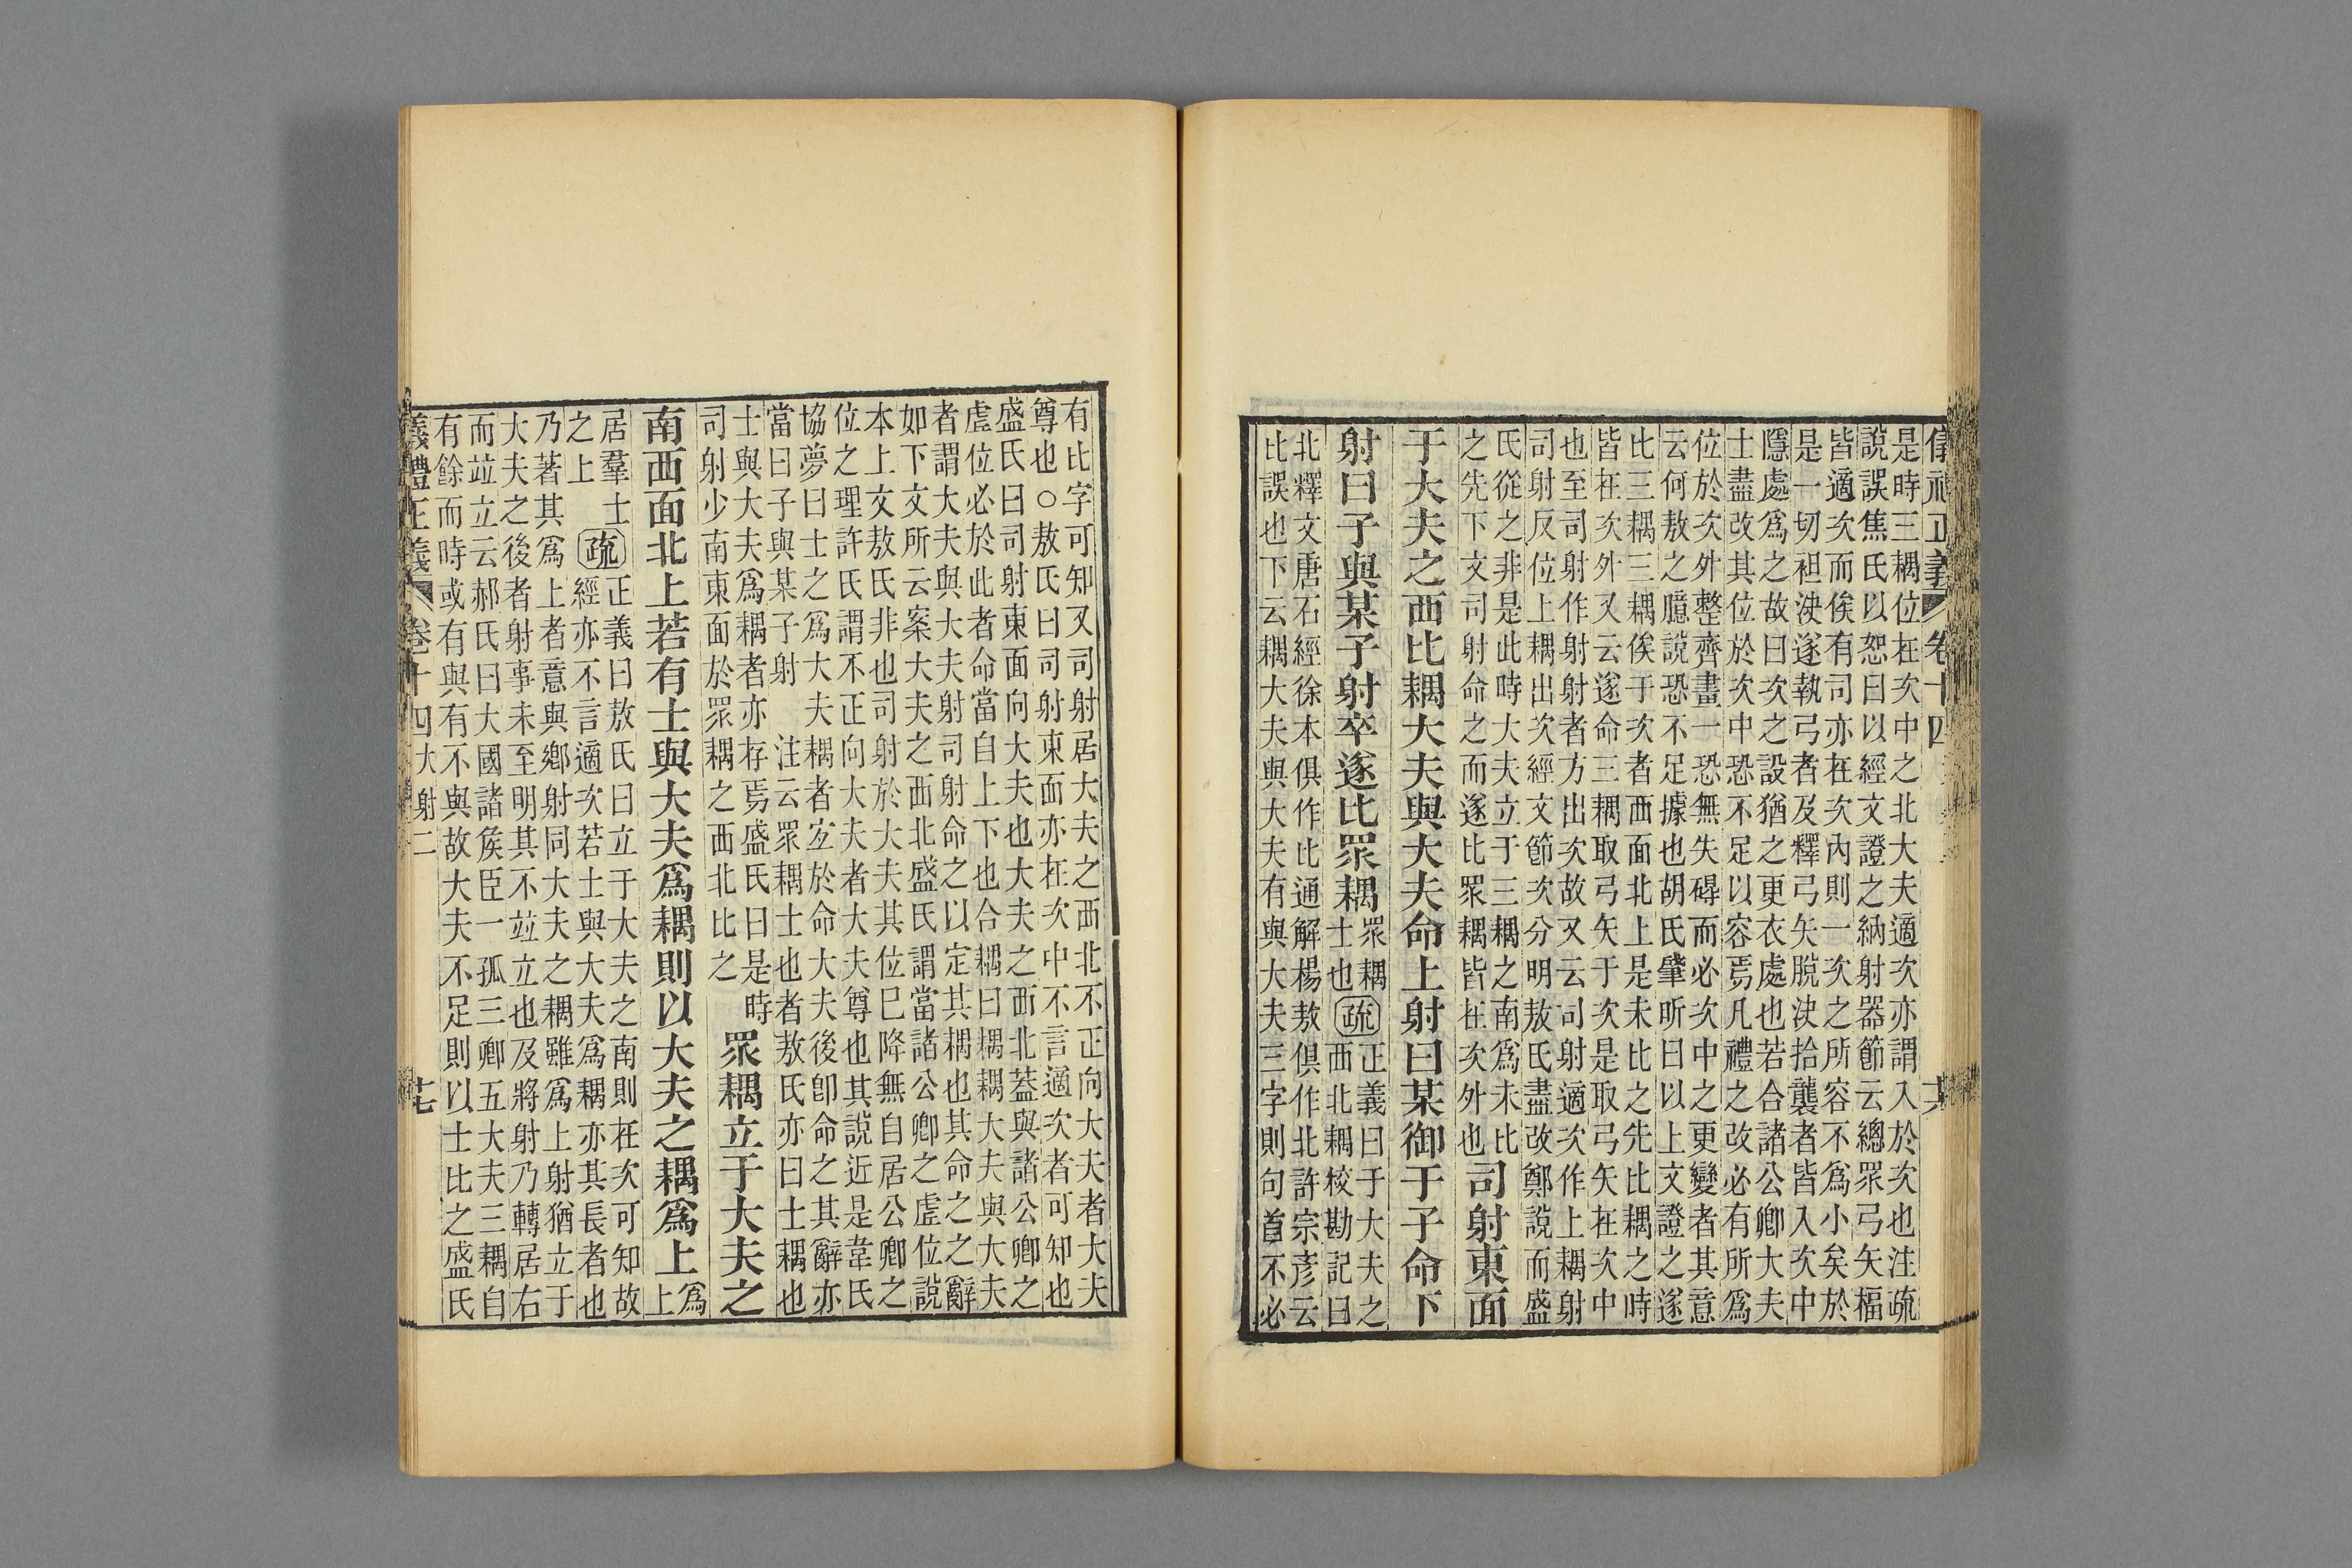 正義 卷十四
是時三耦位在次中之北大夫適次亦謂入於次也注疏
說誤焦氏以恕曰以經文證之納射器節云總眾弓矢楅
皆適次而俟有司亦在次內則一次之所容不為小矣於
是一切袒決遂執弓者及釋弓矢脫決拾襲者皆入次中
隱處為之故曰次之設猶之更衣處也若合諸公卿大夫
士盡改其位於次中恐不足以容焉凡禮之改必有所為
位於次外整齊畫一恐無失碍而必次中之更變者其意
云何敖之臆說恐不足據也胡氏肇昕曰以上文證之遂
比三耦三耦俟于次者西面北上是未比之先比耦之時
皆在次外又云遂命三耦取弓矢于次是取弓矢在次中
也至司射作射射者方出次故又云司射適次作上耦射
司射反位上耦出次經文節次分明敖氏盡改鄭說而盛
氏從之非是此時大夫立于三耦之南為未比
之先下文司射命之而遂比眾耦皆在次外也
司射東面
于大夫之西比耦大夫與大夫命上射曰某御于子命下
射曰子與某子射卒遂比眾耦
眾耦
士也
疏
正義曰于大夫之
西北耦校勘記曰
北釋文唐石經徐本俱作比通解楊敖俱作北許宗彥云
比誤也下云耦大夫與大夫有與大夫三字則句首不必
有比字可知又司射居大夫之西北不正向大夫者大夫
尊也○敖氏曰司射東面亦在次中不言適次者可知也
盛氏曰司射東面向大夫也大夫之西北蓋與諸公卿之
虛位必於此者命當自上下也合耦曰耦耦大夫與大夫
者謂大夫與大夫射司射命之以定其耦也其命之之辭
如下文所云案大夫之西北盛氏謂當諸公卿之虛位說
本上文敖氏非也司射於大夫其位巳降無自居公卿之
位之理許氏謂不正向大夫者大夫尊也其說近是韋氏
協夢曰士之為大夫耦者宜於命大夫後卽命之其辭亦
當曰子與某子射 注云眾耦士也者敖氏亦曰士耦也
士與大夫為耦者亦存焉盛氏曰是時
司射少南東面於眾耦之西北比之
眾耦立于大夫之
南西面北上若有士與大夫為耦則以大夫之耦為上
為
上
居羣士
之上
疏
正義曰敖氏曰立于大夫之南則在次可知故
經亦不言適次若士與大夫為耦亦其長者也
乃著其為上者意與鄉射同大夫之耦雖為上射猶立于
大夫之後者射事未至明其不竝立也及將射乃轉居右
而竝立云郝氏曰大國諸矦臣一孤三卿五大夫三耦自
有餘而時或有與有不與故大夫不足則以士比之盛氏
正義 卷十四 大射二 十七